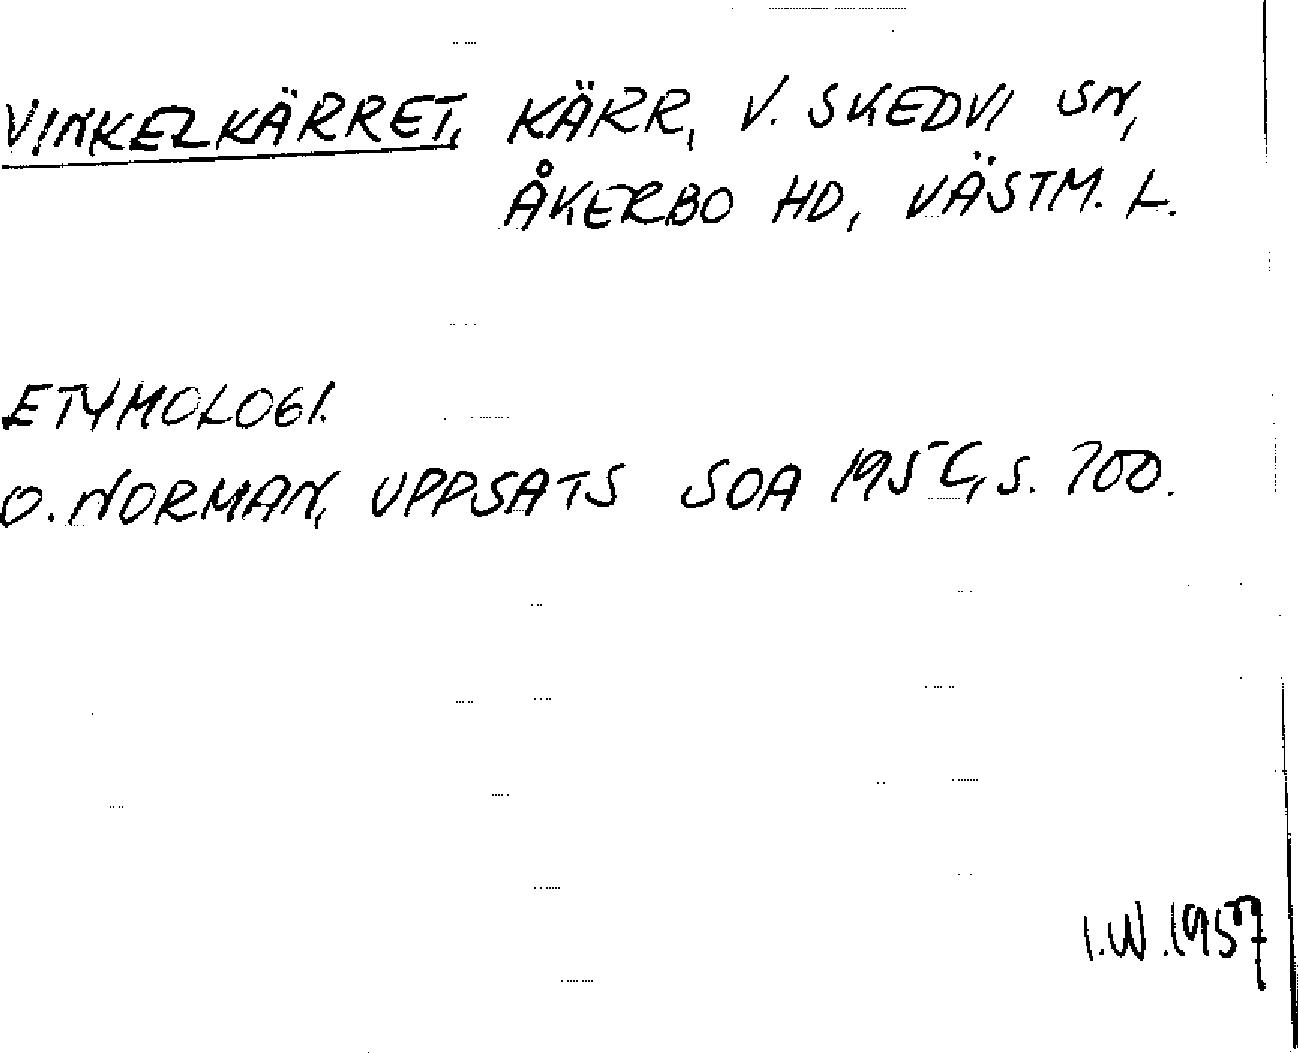 VINKELKÄRRET, KÄRR, V. SKEDVI SN,
ÅKERBO HD, VÄSTM. L.
ETYMOLOGI.
O. NORMAN, UPPSATS SOA 1956, S. 700.
I.W.1957